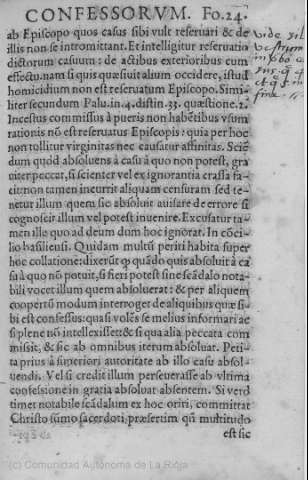 CONFESSORVM. Fo.24.
ab Episcopo quos casus sibi vult reseruari & de
illis non se intromittant. Et intelligitur reseruatio
dictorum casuum: de actibus exterioribus cum
effectu. nam si quis quæsiuit alium occidere, istud
homicidium non est reseruatum Episcopo. Simi-
liter secundum Palu. in 4. distin. 33. quæstione. 2.
Incestus commissus à pueris non habētibus vsum
rationis nō est reseruatus Episcopis: quia per hoc
non tollitur virginitas nec causatur affinitas. Sciē
dum quòd absoluens à casu à quo non potest, gra
uiter peccat, si scienter vel ex ignorantia crassa fa
cit: non tamen incurrit aliquam censuram sed te-
netur illum quem sic absoluit auisare de errore si
cognoscit illum vel potest inuenire. Excusatur ta-
men ille quo ad deum dum hoc ignorat. In cōci-
lio basiliensi. Quidam multū periti habita super
hoc collatione: dixerūt ꝙ quādo quis absoluit à ca
su à quo nō potuit, si fieri potest sine scādalo nota-
bili vocet illum quem absoluerat: & per aliquem
coopertū modum interroget de aliquibus quæ si-
bi est confessus: quasi volēs se melius informari ac
si plene nō intellexisset: & si qua alia peccata com
misit, & sic ab omnibus iterum absoluat. Peti-
ta prius à superiori autoritate ab illo casu absol-
uendi. Vel si credit illum perseuerasse ab vltima
confesione in gratia absoluat absentem. Si verò
timet notabile scādalum ex hoc oriri, committat
Christo sūmo sacerdoti, præsertim qn̄ multitudo
est sic
(c) Comunidad Autónoma de La Rioja